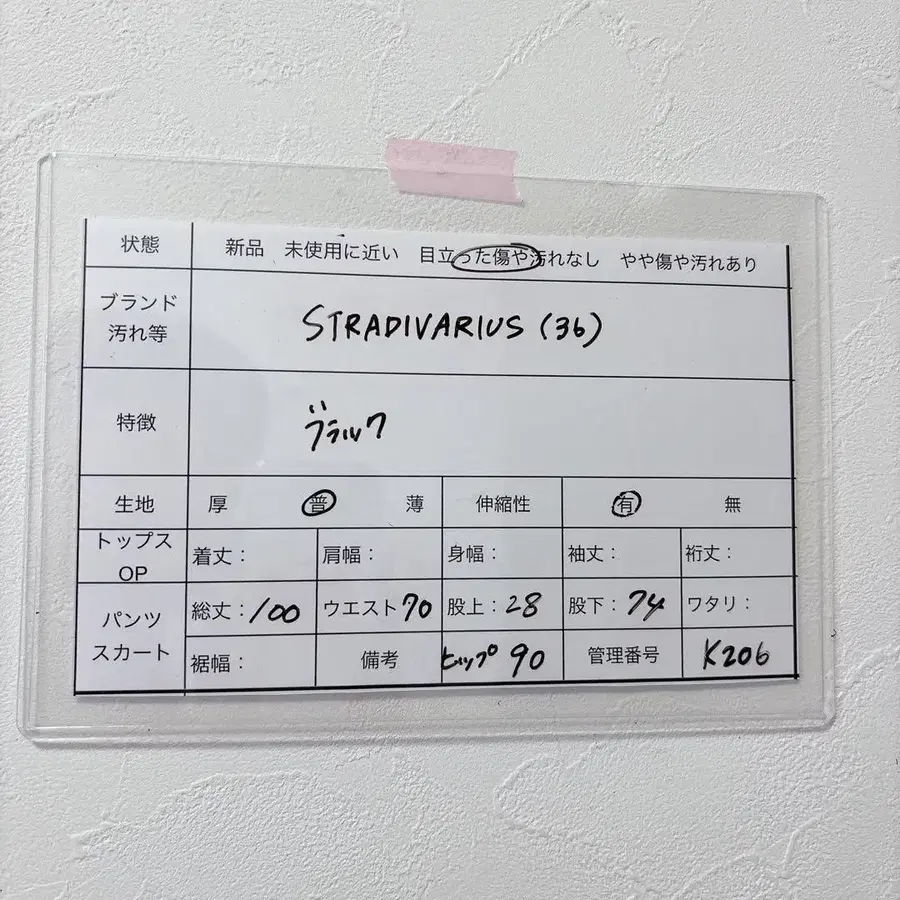 状態 新品 未使用に近い 目立った傷や汚れなし やや傷や汚れあり
ブランド
汚れ等
STRADIVARIUS (36)
特徴 ブラック
生地 厚 普 薄 伸縮性 有 無
トップス
OP
着丈： 肩幅： 身幅： 袖丈： 裄丈：
パンツ
スカート
総丈：100 ウエスト 70 股上：28 股下：74 ワタリ：
裾幅： 備考 ヒップ 90 管理番号 K206